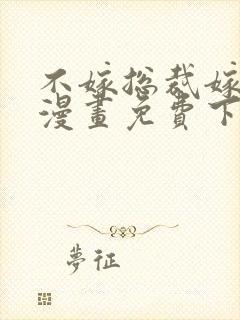 不嫁总裁嫁
漫畫免費下
夢征